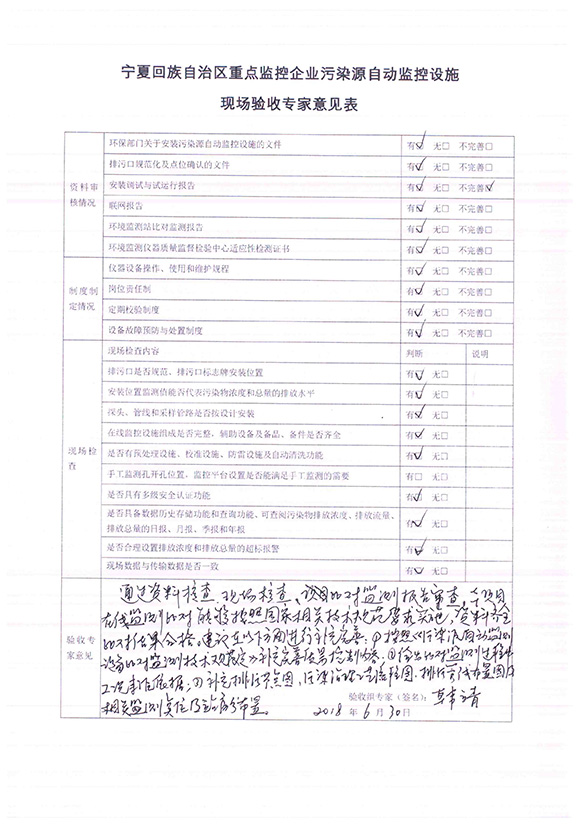 宁夏回族自治区重点监控企业污染源自动监控设施
现场验收专家意见表
资料审核情况
环保部门关于安装污染源自动监控设施的文件 有☑ 无□ 不完善□
排污口规范化及点位确认的文件 有☑ 无□ 不完善□
安装调试与试运行报告 有☑ 无□ 不完善☑
联网报告 有☑ 无□ 不完善□
环境监测站比对监测报告 有☑ 无□ 不完善□
环境监测仪器质量监督检验中心适应性检测证书 有☑ 无□ 不完善□
制度制定情况
仪器设备操作、使用和维护规程 有☑ 无□ 不完善□
岗位责任制 有☑ 无□ 不完善□
定期校验制度 有☑ 无□ 不完善□
设备故障预防与处置制度 有☑ 无□ 不完善□
现场检查
现场检查内容 判断 说明
排污口是否规范、排污口标志牌安装位置 有☑ 无□
安装位置监测值能否代表污染物浓度和总量的排放水平 有☑ 无□
探头、管线和采样管路是否按设计安装 有☑ 无□
在线监控设施组成是否完整，辅助设备及备品、备件是否齐全 有☑ 无□
是否有预处理设施、校准设施、防雷设施及自动清洗功能 有☑ 无□
手工监测孔开孔位置，监控平台设置是否能满足手工监测的需要 有□ 无□
是否具有多级安全认证功能 有☑ 无□
是否具备数据历史存储功能和查询功能、可查阅污染物排放浓度、排放流量、
排放总量的日报、月报、季报和年报 有☑ 无□
是否合理设置排放浓度和排放总量的超标报警 有☑ 无□
现场数据与传输数据是否一致 有☑ 无□
验收专家意见
通过资料核查、现场核查、比对监测报告审查，该项目
在线监测比对能够按照国家相关技术规范要求实施，资料齐全
比对结果合格，建议在以下方面进行补充完善：①按照
设备比对监测技术规范补充完善质量控制内容，②给出比对监测过程中
工况核定依据；③补充排污节点图，污染治理工艺流程图、
相关监测点位
验收组专家（签名）：
2018 年 6 月 30 日